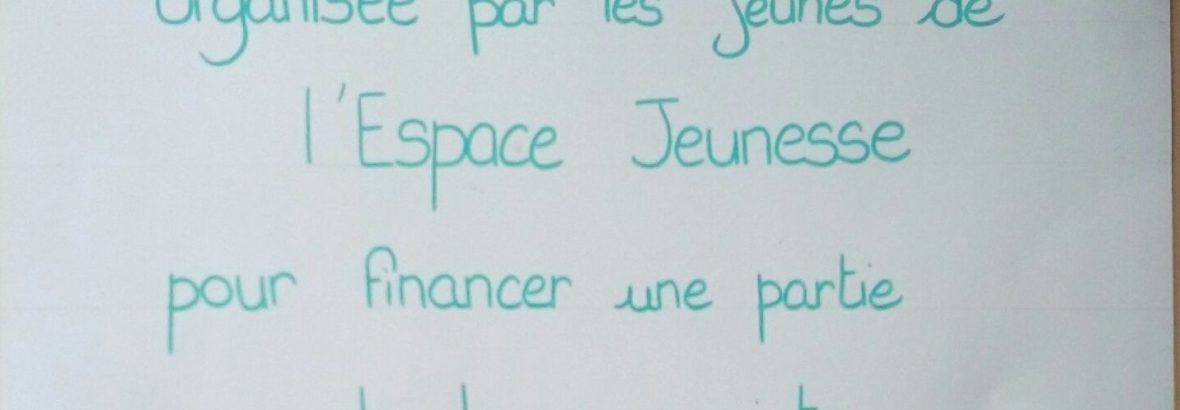 organisée par les jeunes de
l'Espace Jeunesse
pour financer une partie